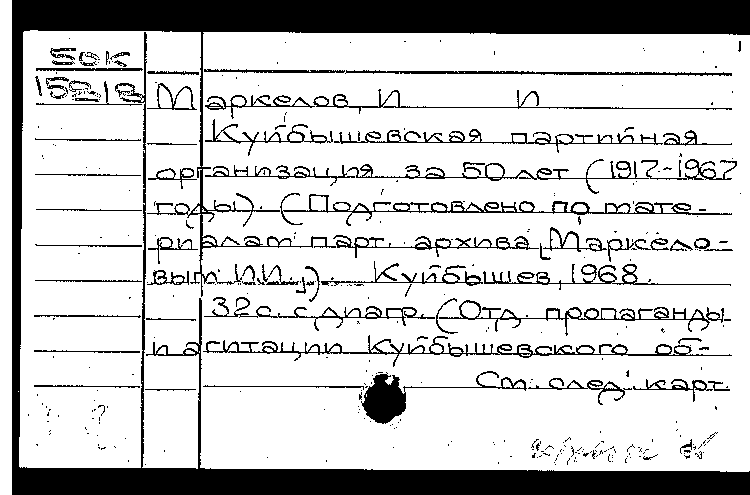 50к
15818
Маркелов, И И
Куйбышевская партийная
организация за 50 лет (1917-1967
годы). (Подготовлено по мате-
риалам парт. архива [Маркело-
вым И.И.]). Куйбышев, 1968.
32 с. с диагр. (Отд. пропаганды
и агитации Куйбышевского об-
См. след. карт